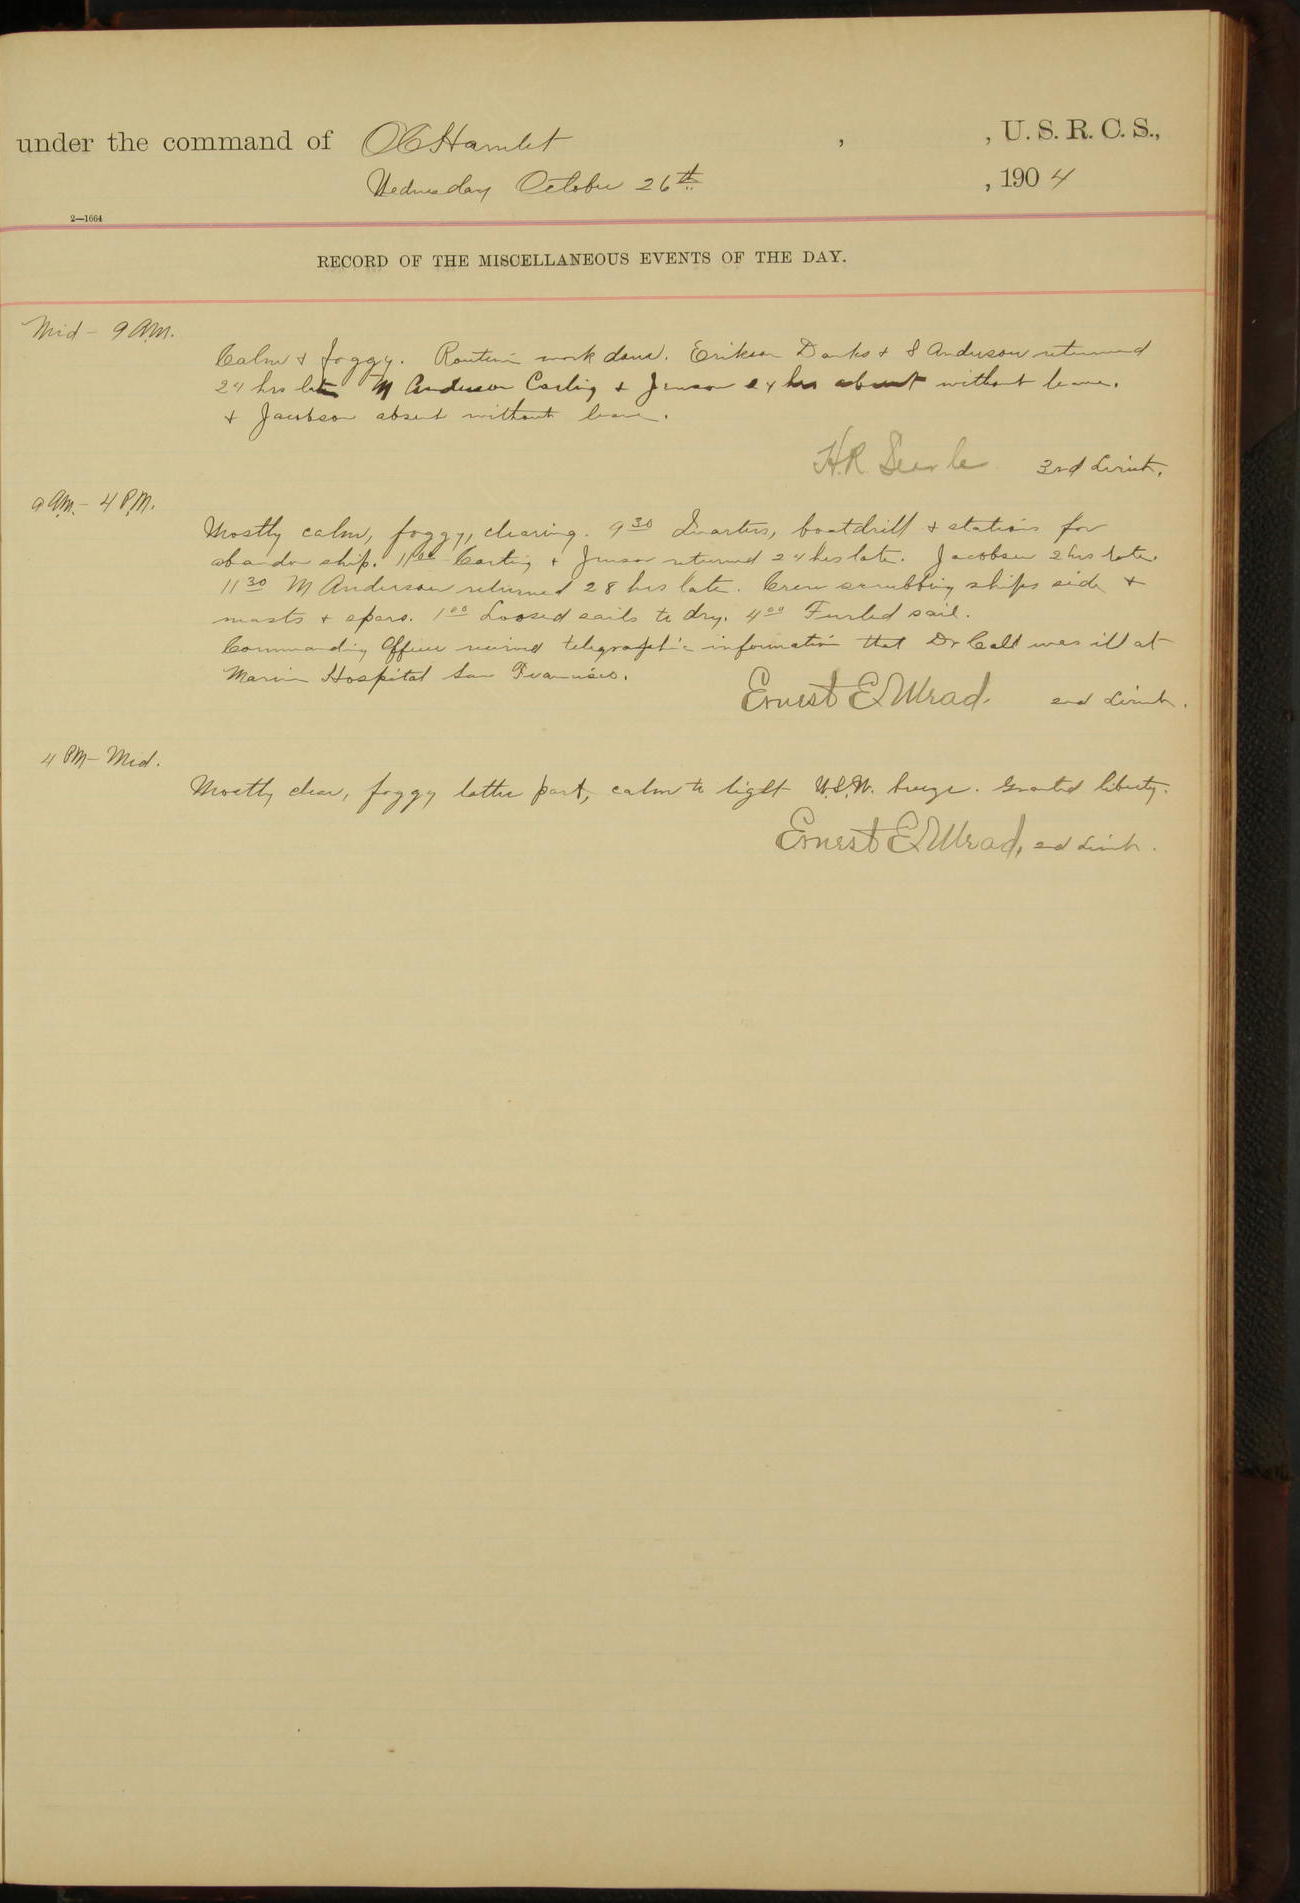 under the command of O C Hamlet , , U. S. R. C. S.,
Wednesday October 26th , 1904
2—1664
RECORD OF THE MISCELLANEOUS EVENTS OF THE DAY.
Mid - 9 A.M.
Calm & foggy. Routine work done. Erikson Danks & S Anderson returned
24 hrs late M Anderson Carling & Jenson 24 hrs absent without leave.
& Jacobson absent without leave.
H.R. Searle 3rd Lieut.
9 A.M. - 4 P.M.
Mostly calm, foggy, clearing. 9 30 Quarters, boatdrill & stations for
abandon ship. 11 Carling & Jenson returned 24 hrs late. Jacobsen 2 hrs late.
11 30 M Anderson returned 28 hrs late. Crew scrubbing ships side &
masts & spars. 1 00 Loosed sails to dry. 4 00 Furled sail.
Commanding Officer received telegraphic information that Dr Call was ill at
Marine Hospital San Francisco.
Ernest E. Mead. 2nd Lieut.
4 PM - Mid.
Mostly clear, foggy latter part, calm to light W.S.W. breeze. Granted liberty.
Ernest E. Mead, 2nd Lieut.